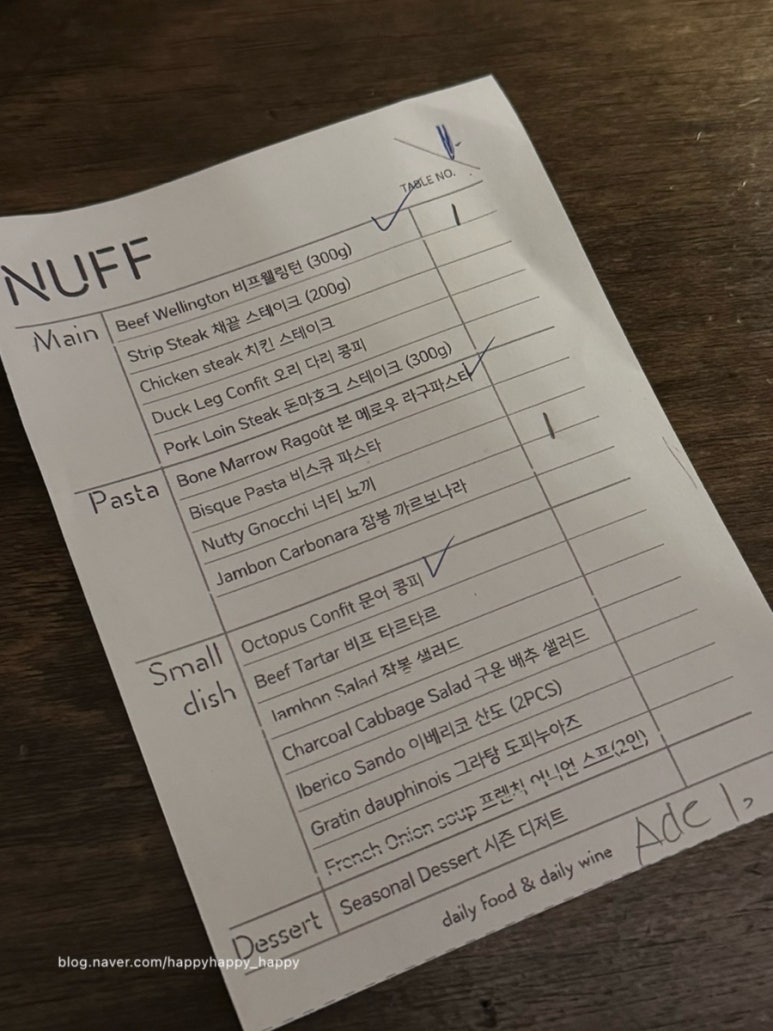 TABLE NO.
NUFF
Main
Beef Wellington 비프웰링턴 (300g)
Strip Steak 채끝 스테이크 (200g)
Chicken steak 치킨 스테이크
Duck Leg Confit 오리 다리 콩피
Pork Loin Steak 돈마호크 스테이크 (300g)
Pasta
Bone Marrow Ragoût 본 메로우 라구파스타
Bisque Pasta 비스큐 파스타
Nutty Gnocchi 너티 뇨끼
Jambon Carbonara 잠봉 까르보나라
Small
dish
Octopus Confit 문어 콩피
Beef Tartar 비프 타르타르
Jambon Salad 잠봉 샐러드
Charcoal Cabbage Salad 구운 배추 샐러드
Iberico Sando 이베리코 산도 (2PCS)
Gratin dauphinois 그라탕 도피누아즈
French Onion soup 프렌치 어니언 스프(2인)
Dessert
Seasonal Dessert 시즌 디저트
daily food & daily wine
Ade 1,
blog.naver.com/happyhappy_happy